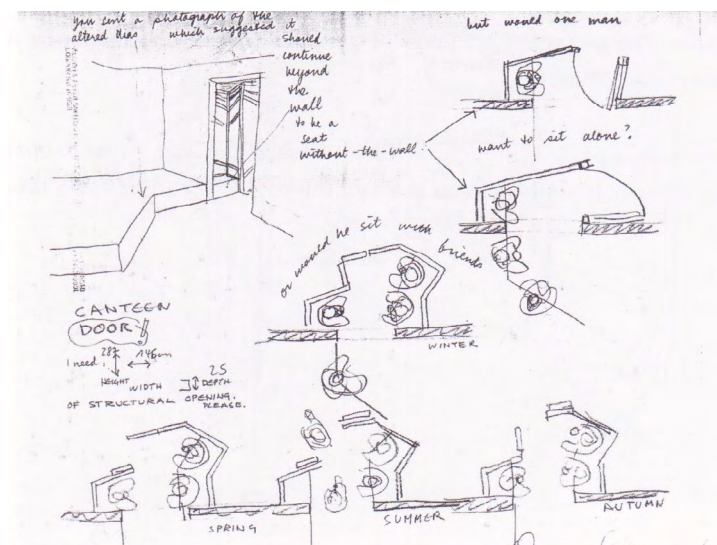 You sent a photograph of the
altered dias which suggested it
should
continue
beyond
the
wall
to be a
seat
without the wall
but would one man
want to sit alone?
or would he sit with friends
WINTER
CANTEEN
DOOR
I need.
287 146cm 25
HEIGHT WIDTH DEPTH
OF STRUCTURAL OPENING.
PLEASE.
SPRING
SUMMER
AUTUMN